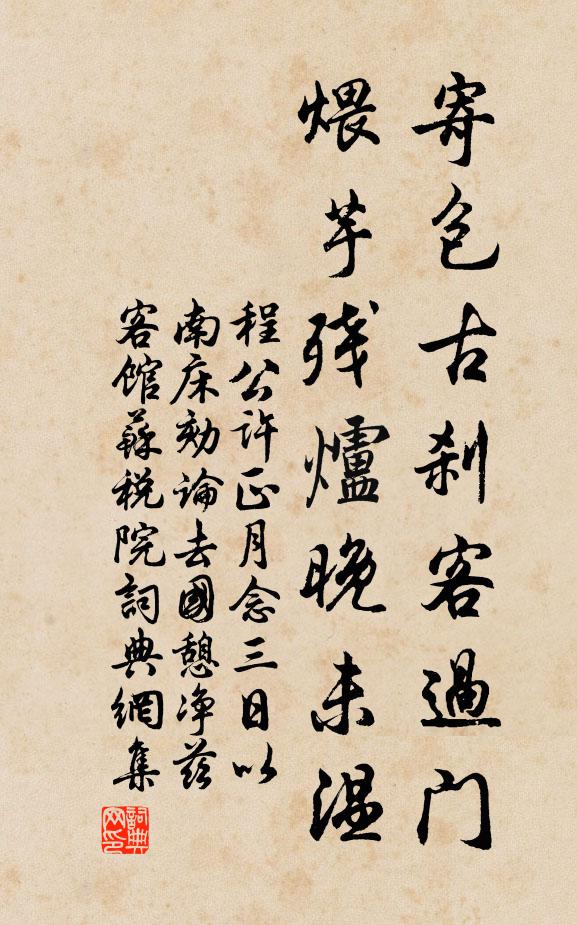 寄包古刹客過门
煨芋残爐晚未温
程公許正月念三日以
南床劾論去國憩净兹
客館蘇税院詞典網集
詞典网印